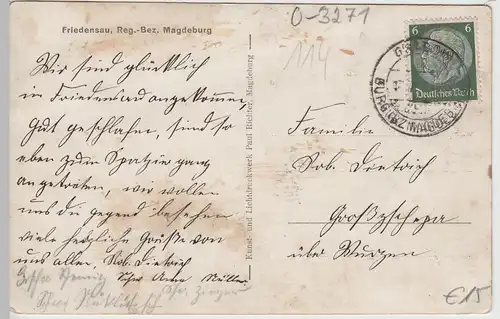 Friedensau, Reg.-Bez. Magdeburg
O-3271
114
Wir sind glücklich
in Friedensau angekommen
Gut geschlafen, sind so
eben zum Spatziergang
angetreten, wir wollen
uns die Gegend besehen
viele herzliche Grüße von
uns allen. Rob. Dietrich
Schw. Anna Müller
Kunst- und Lichtdruckwerk Paul Richter, Magdeburg
6 6
Deutsches Reich
BURG (BZ. MAGDEB.)
Familie
Rob. Dietrich
Großzschepa
über Wurzen
€15